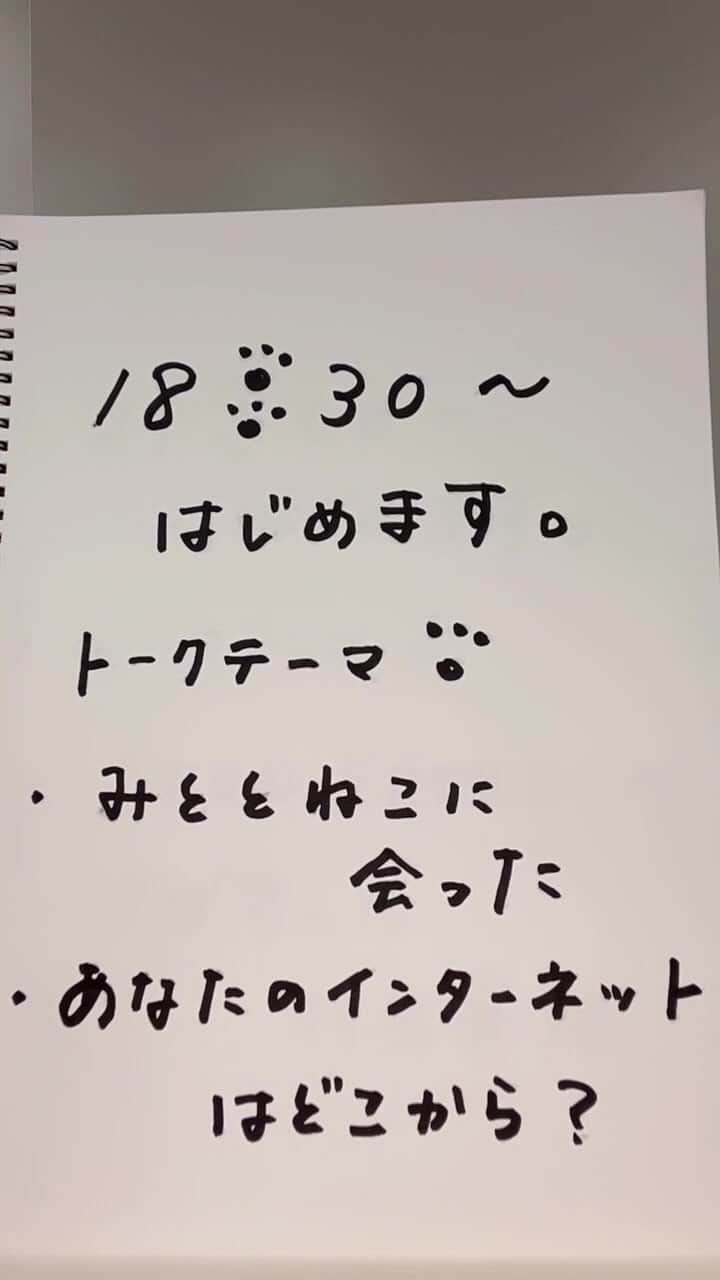 18:30～
はじめます。
トークテーマ:
・みととねこに
会った
・あなたのインターネット
はどこから?